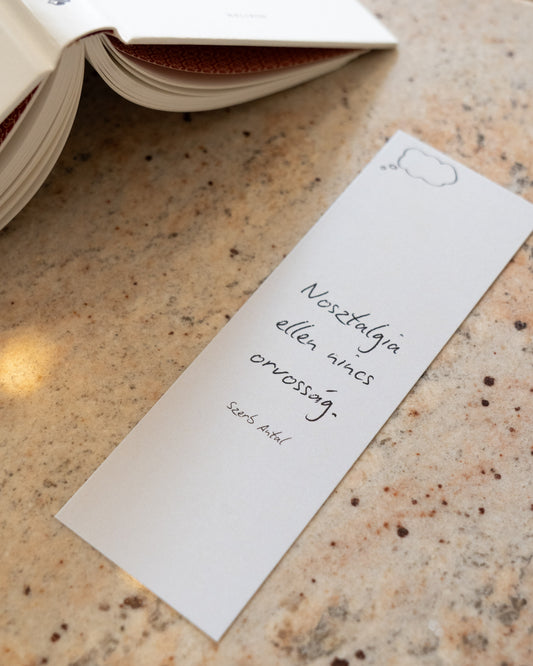 Nosztalgia
ellen nincs
orvosság.
Szerb Antal